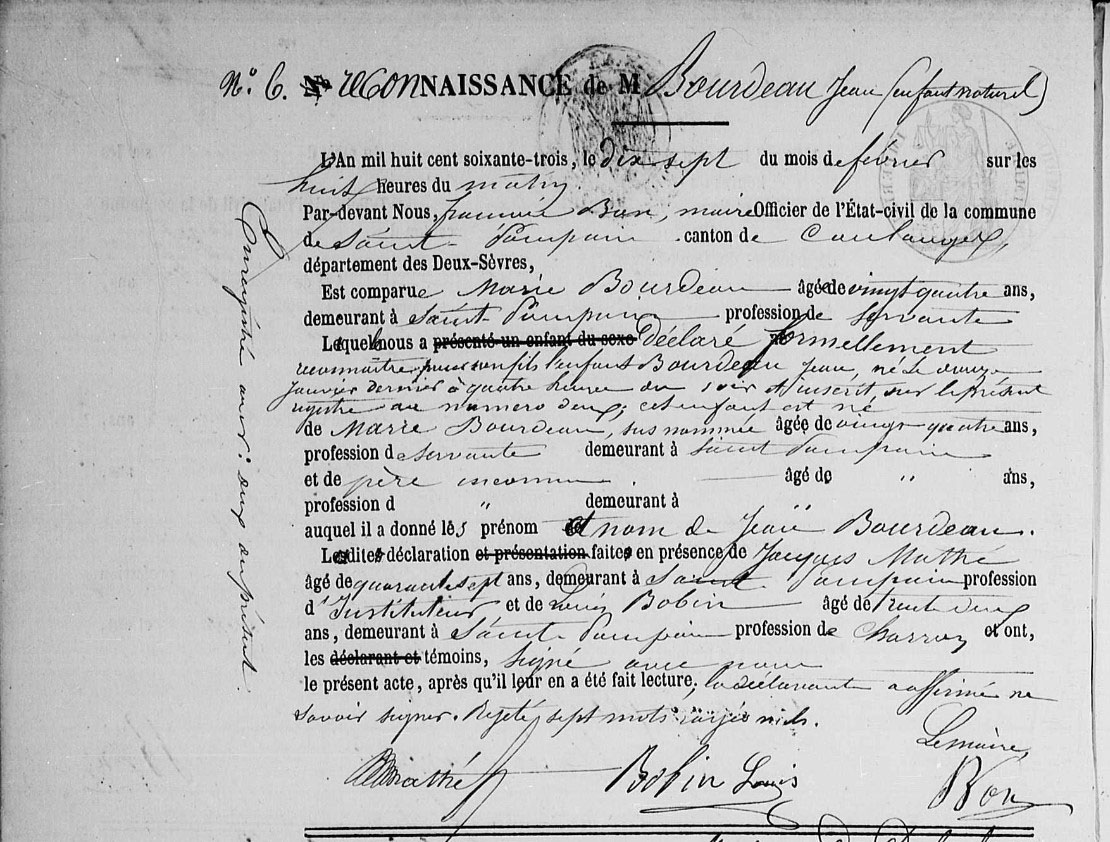 N° 6. reconNAISSANCE de M Bourdeau Jean (enfant naturel)
L'An mil huit cent soixante-trois, le dix sept du mois de février sur les
huit heures du matin
Par-devant Nous, Bon, maire Officier de l'État-civil de la commune
de Saint Pompain canton de Coulonges,
département des Deux-Sèvres,
Est comparue Marie Bourdeau âgée de vingt quatre ans,
demeurant à Saint Pompain profession de servante
Laquelle nous a présenté un enfant du sexe déclaré formellement
reconnaître pour son fils l'enfant Bourdeau Jean, né le douze
janvier dernier à quatre heures du soir et inscrit, sur le présent
registre au numéro deux; cet enfant est né
de Marie Bourdeau, sus nommée âgée de vingt quatre ans,
profession de servante demeurant à Saint Pompain
et de père inconnu âgé de " ans,
profession d " demeurant à
auquel il a donné les prénom et nom de Jean Bourdeau.
Lesdites déclaration et présentation faites en présence de Jacques Mathé
âgé de quarante sept ans, demeurant à Saint Pompain profession
d'Instituteur et de Louis Bobin âgé de trente deux
ans, demeurant à Saint Pompain profession de charron et ont,
les déclarant et témoins, signé avec nous
le présent acte, après qu'il leur en a été fait lecture; la déclarante a affirmé ne
savoir signer. Rejeté sept mots rayés nuls.
Le maire,
Mathé Bobin Louis Bon
Enregistré aussi: deux au présent.